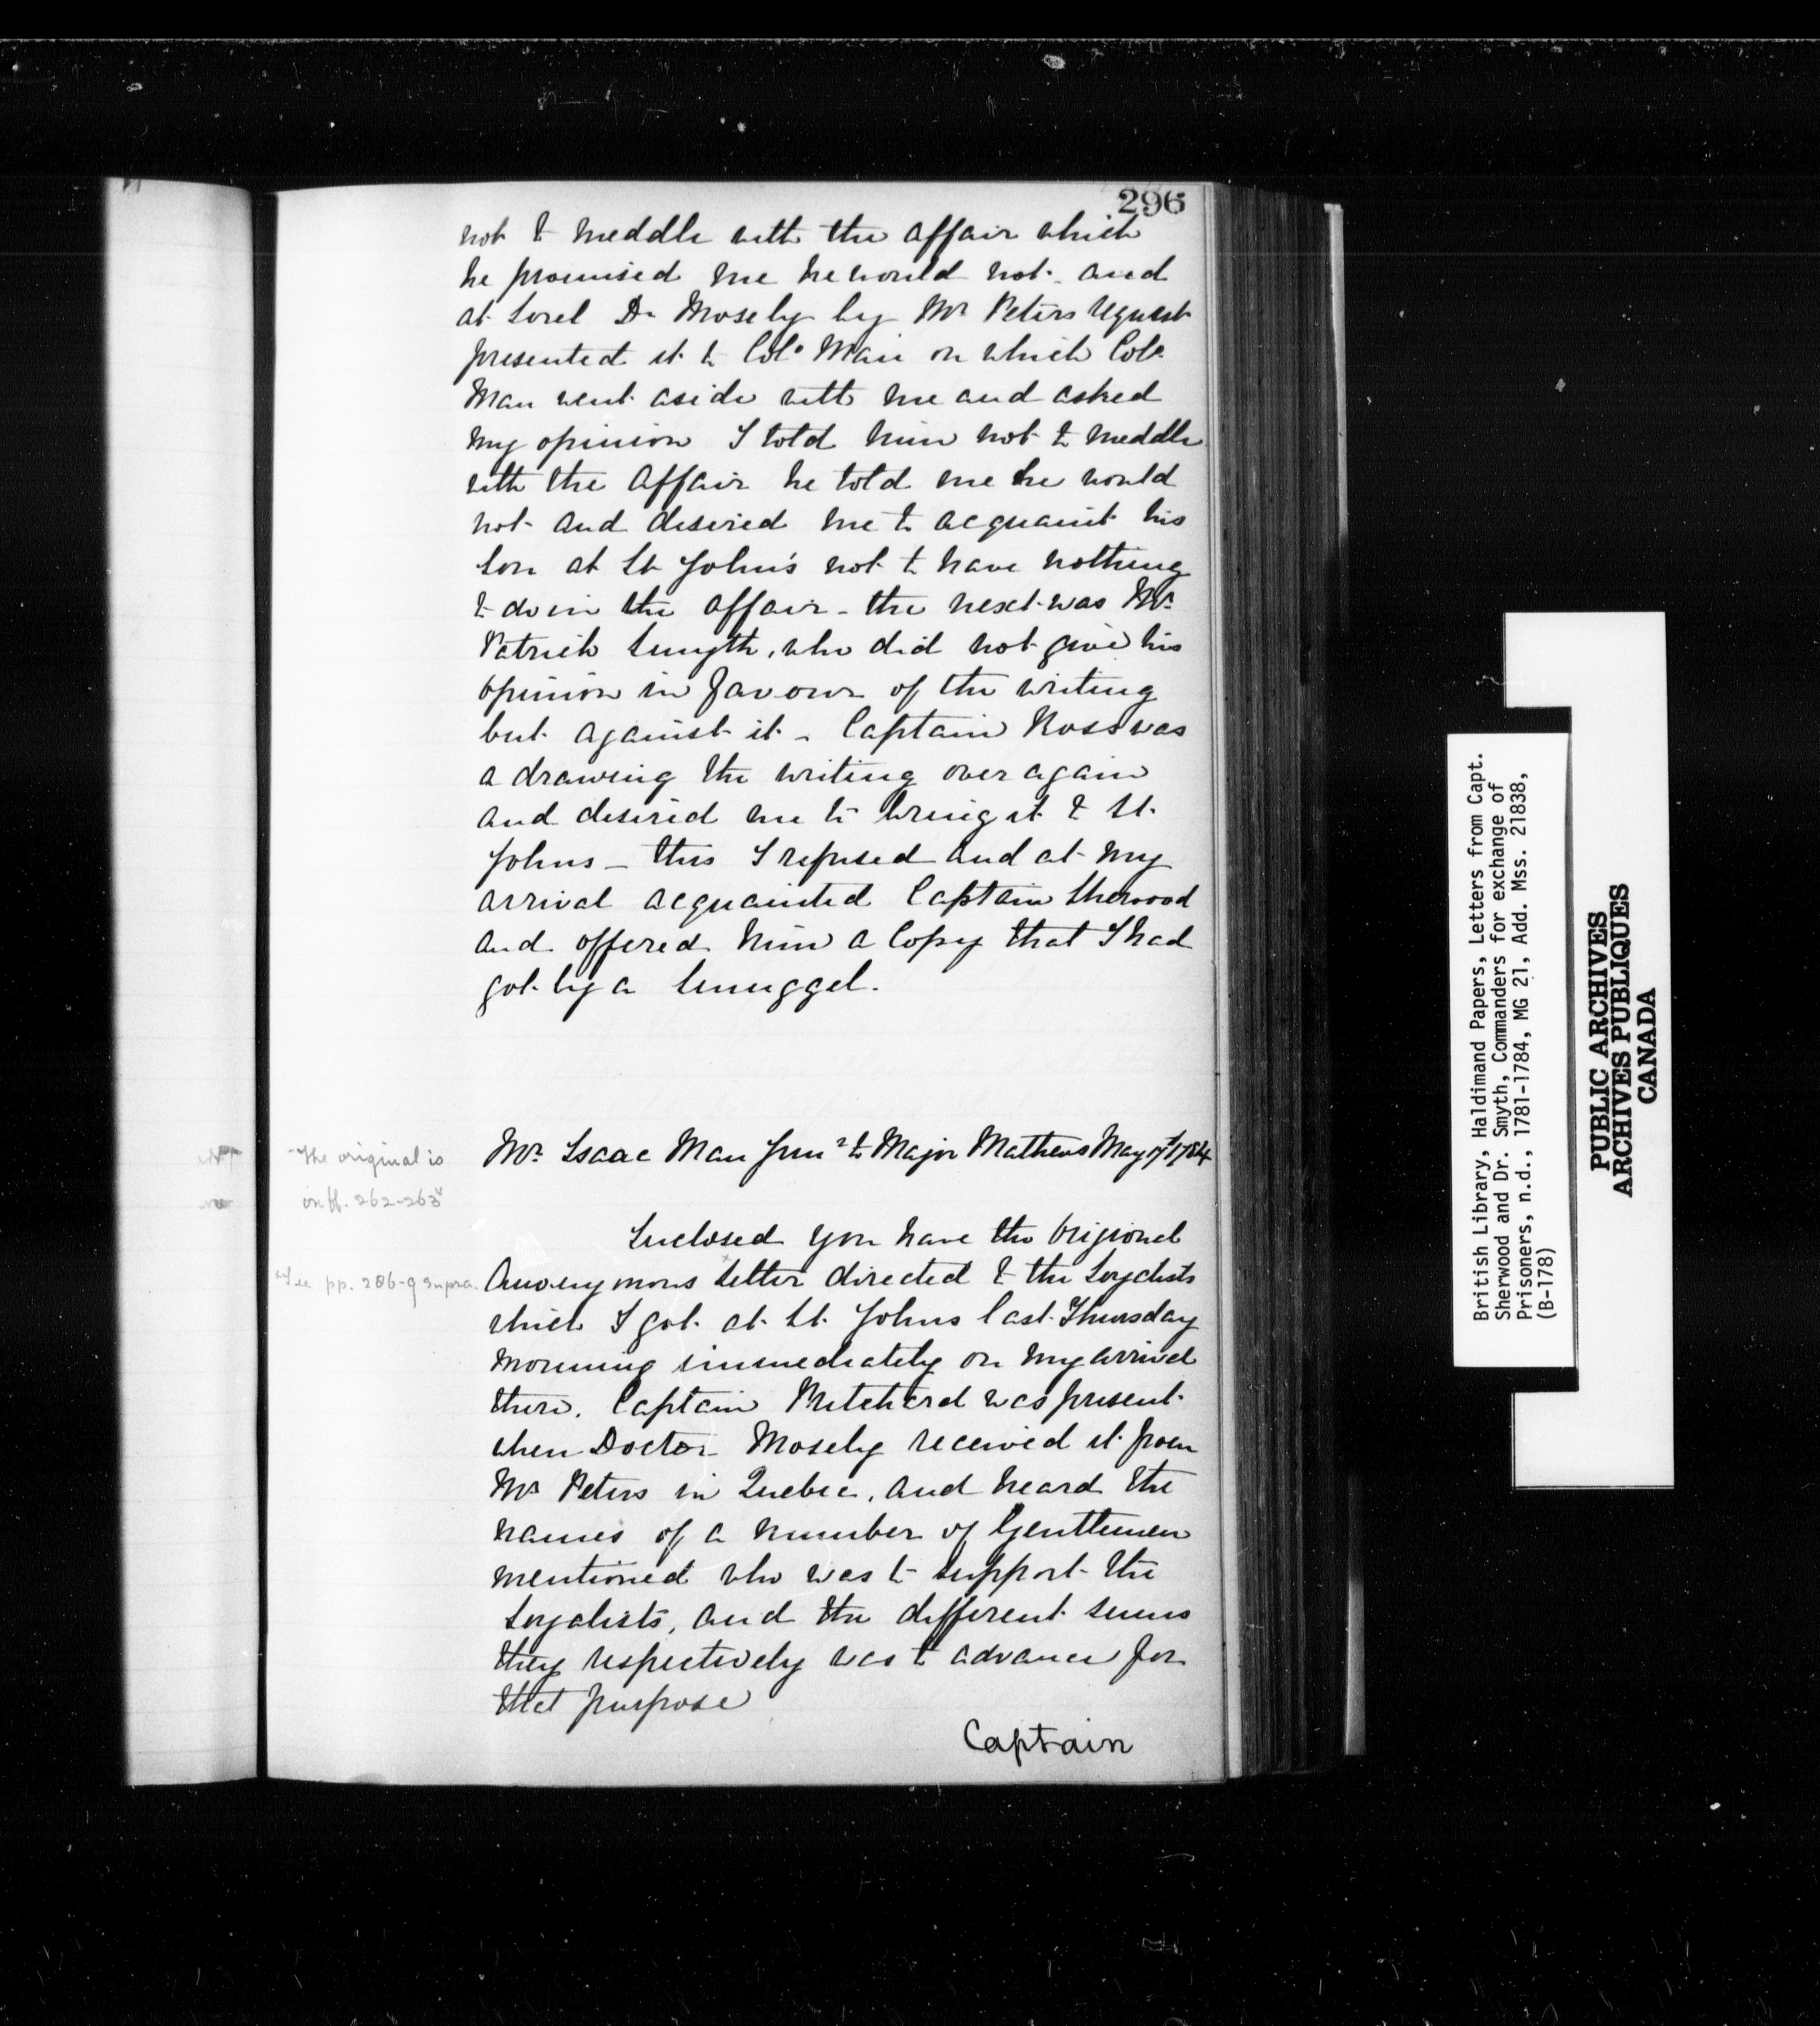 296
not to meddle with the affair which
he promised me he would not. and
at Sorel Dr Mosely by Mr Peters request
presented it to Colo Man on which Colo
Man went aside with me and asked
my opinion I told him not to meddle
with the affair he told me he would
not and desired me to acquaint his
son at St John's not to have nothing
to do in the affair - the next was Mr
Patrick Smyth, who did not give his
opinion in favour of the writing
but against it - Captain Ross was
a drawing the writing over again
and desired me to bring it to St.
Johns - this I refused and at my
arrival acquainted Captain Sherwood
and offered him a Copy that I had
got by a Smuggel.
Mr Isaac Man Junr to Major Mathews May 17th 1784
The original is
in ff. 262-263v
Inclosed you have the Origional
Annonymous letter directed to the Loyalists
See pp. 286-9 supra.
which I got at St. Johns last Thursday
morning immediately on my arrival
there. Captain Pritchard was present
when Doctor Mosely received it from
Mr Peters in Quebec, and heard the
names of a number of Gentlemen
mentioned who was to support the
Loyalists, and the different sums
they respectively was to advance for
that purpose
Captain
British Library, Haldimand Papers, Letters from Capt.
Sherwood and Dr. Smyth, Commanders for exchange of
Prisoners, n.d., 1781-1784, MG 21, Add. Mss. 21838,
(B-178)
PUBLIC ARCHIVES
ARCHIVES PUBLIQUES
CANADA